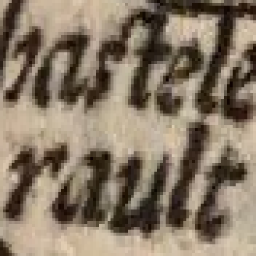 hastele
rault